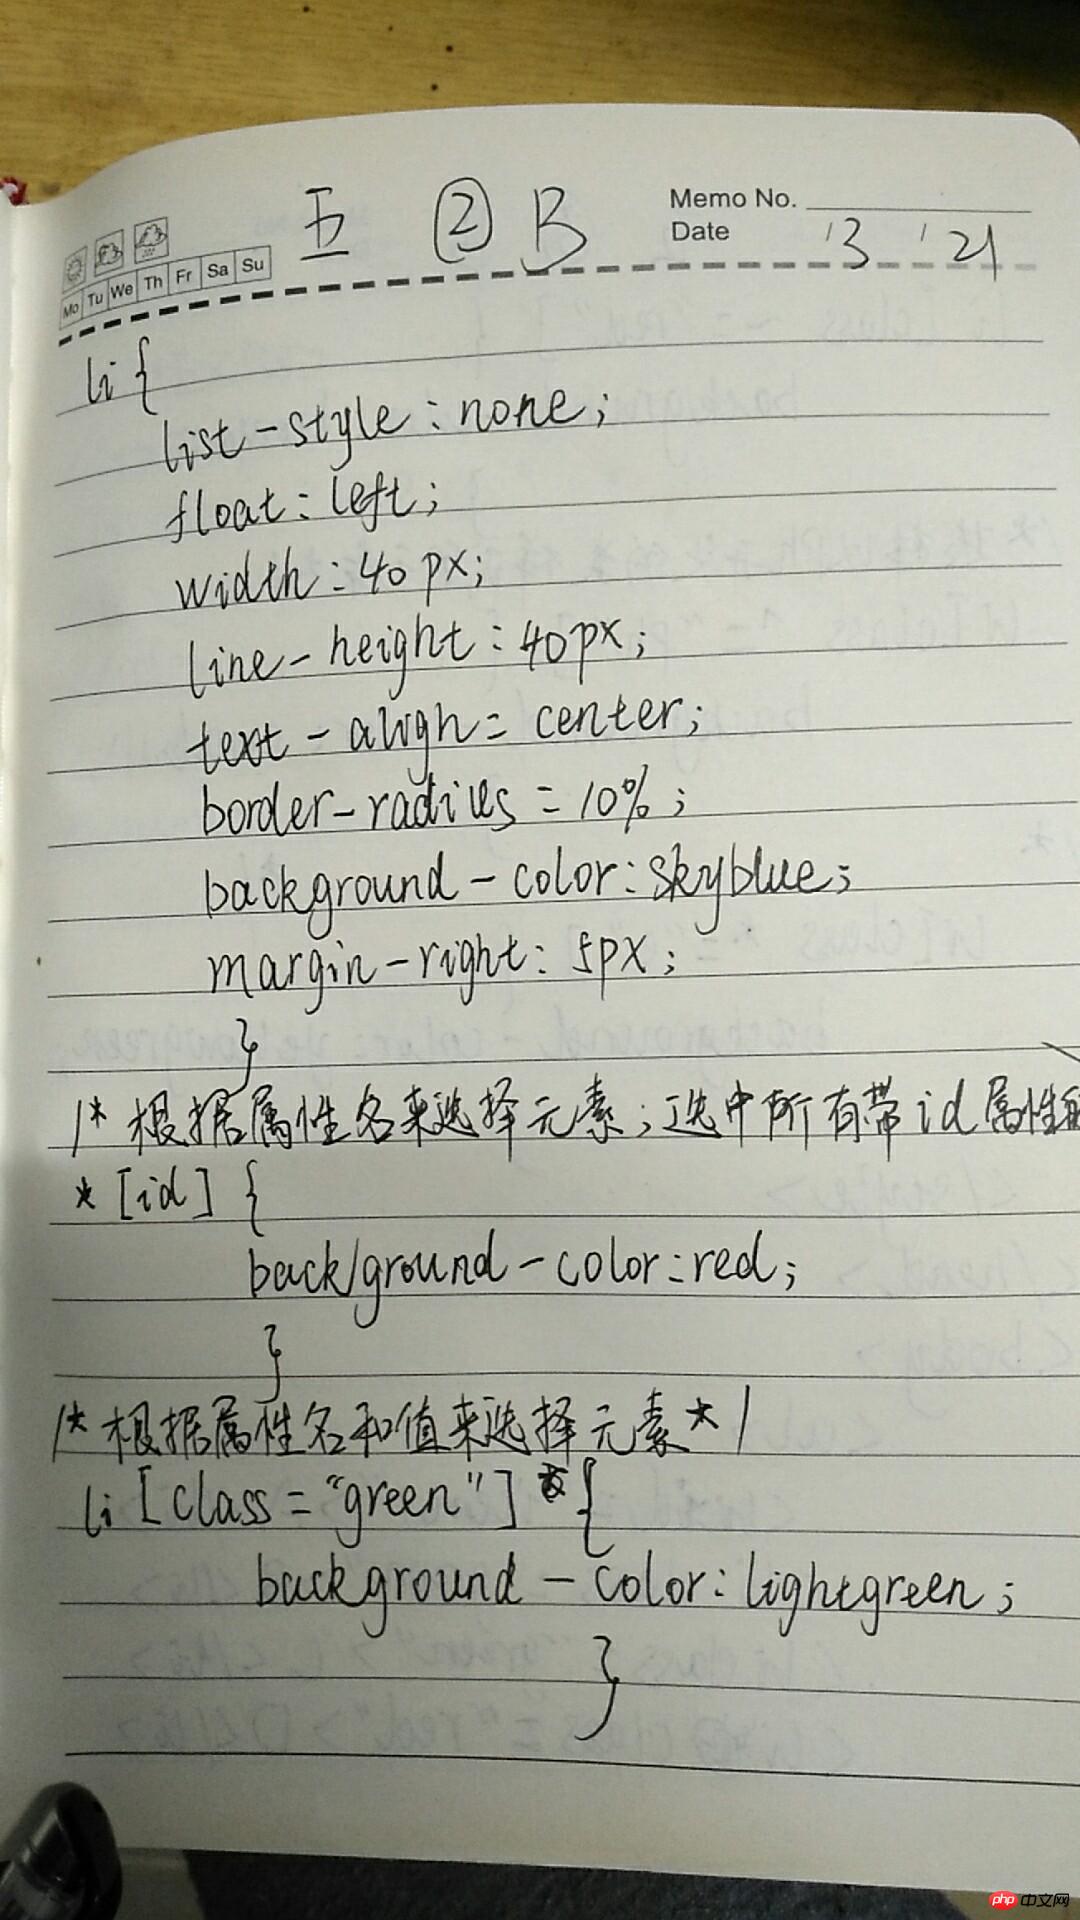 五 ② B
Memo No.
Date '3 '21
Mo Tu We Th Fr Sa Su
li {
list-style:none;
float:left;
width:40px;
line-height:40px;
text-align=center;
border-radius=10%;
background-color:skyblue;
margin-right:5px;
}
/* 根据属性名来选择元素;选中所有带id属性
* [id] {
back/ground-color:red;
}
/* 根据属性名和值来选择元素 */
li [class="green"] {
background-color:lightgreen;
}
php 中文网